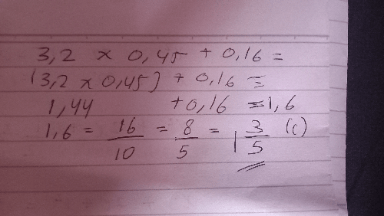 3,2 x 0,45 + 0,16 =
(3,2 x 0,45) + 0,16 =
1,44 + 0,16 = 1,6
1,6 = 16/10 = 8/5 = 1 3/5 (c)